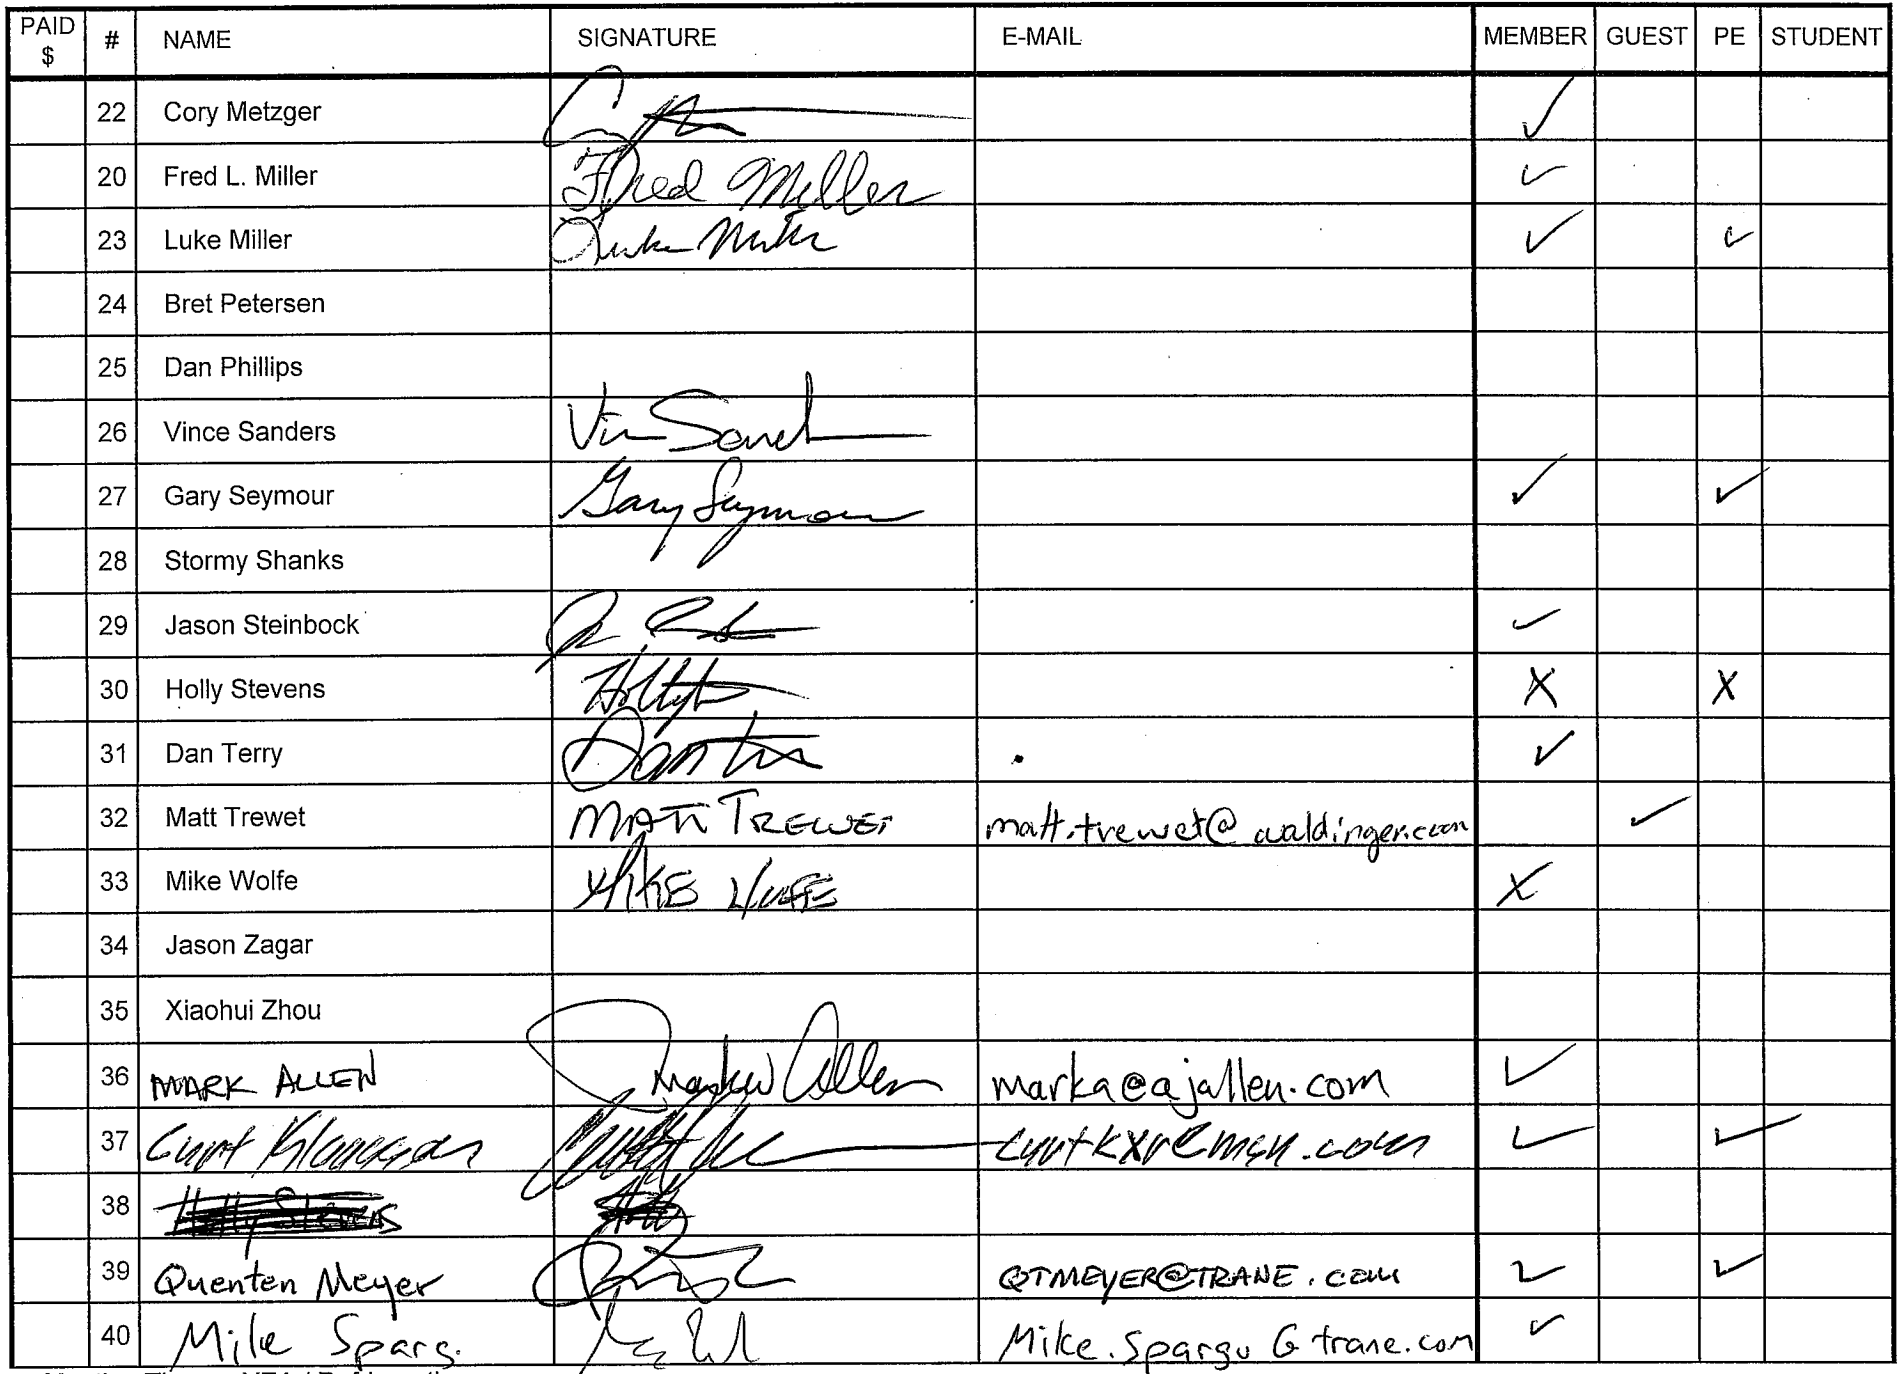 PAID $ # NAME SIGNATURE E-MAIL MEMBER GUEST PE STUDENT
22 Cory Metzger ✓
20 Fred L. Miller Fred Miller ✓
23 Luke Miller Luke Miller ✓ ✓
24 Bret Petersen
25 Dan Phillips
26 Vince Sanders
27 Gary Seymour Gary Seymour ✓ ✓
28 Stormy Shanks
29 Jason Steinbock ✓
30 Holly Stevens X X
31 Dan Terry ✓
32 Matt Trewet MATT TREWET matt.trewet@waldinger.com ✓
33 Mike Wolfe MIKE WOLFE X
34 Jason Zagar
35 Xiaohui Zhou
36 MARK ALLEN Allen marka@ajallen.com ✓
37 Curt ✓ ✓
38 Holly Stevens
39 Quenten Meyer QTMEYER@TRANE.com ✓ ✓
40 Mike Mike.spargu G trane.com ✓